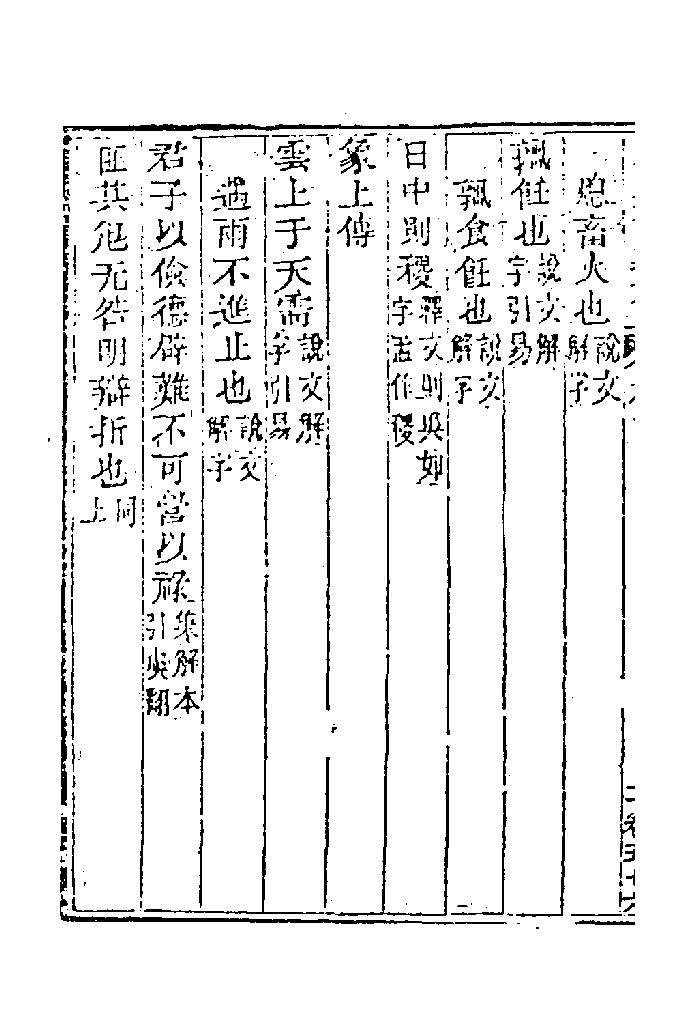 熄畜火也說文解字
孰飪也說文解字引易
孰食飪也說文解字
日中則稷釋文則昃如字孟作稷
象上傳
雲上于天需說文解字引易
遇雨不進止也說文解字
君子以儉德辟難不可營以祿集解本引虞翻
匪其尪无咎明辯折也同上